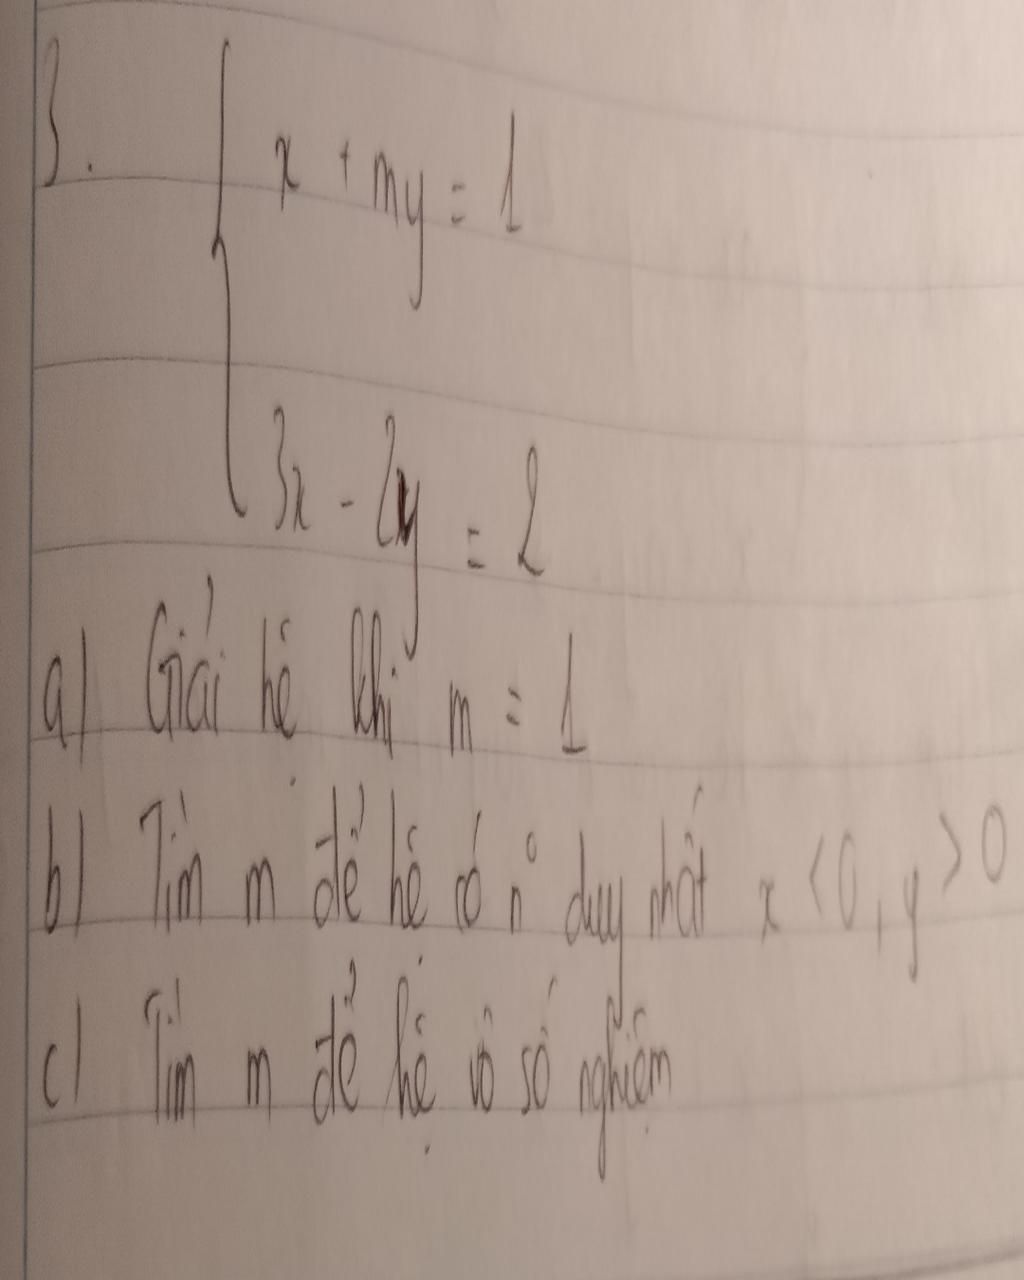 3.
x + my = 1
3x - 2y = 2
a) Giải hệ khi m = 1
b) Tìm m để hệ có n° duy nhất x < 0, y > 0
c) Tìm m để hệ vô số nghiệm